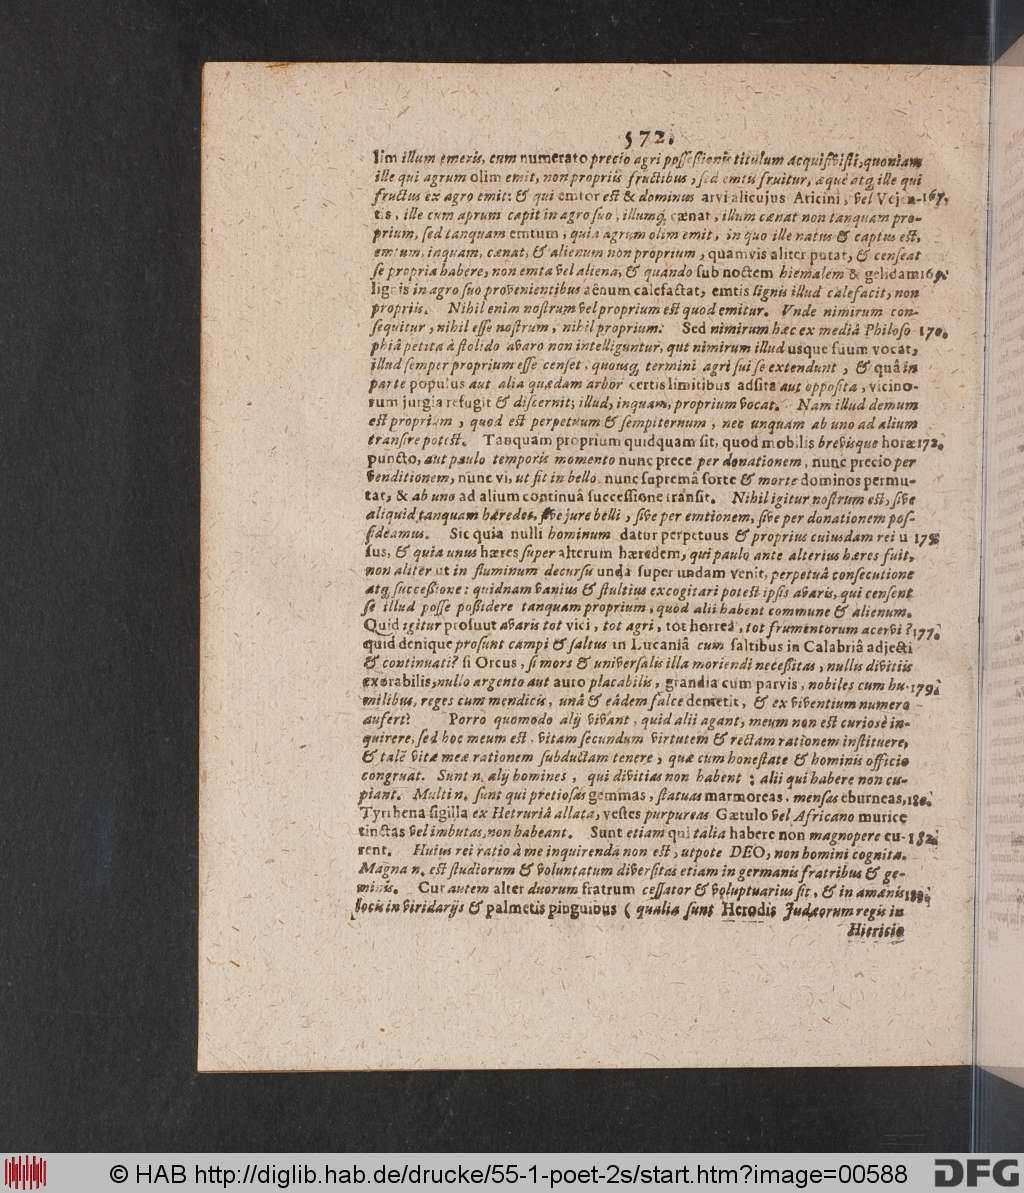 572.
lim illum emeris, cum numerato precio agri possessionis titulum acquisivisti, quoniam
ille qui agrum olim emit, non propriis fructibus, sed emtis fruitur, æque atq; ille qui
fructus ex agro emit: & qui emtor est & dominus arvi alicujus Aricini, vel Vejen- 167.
tis, ille cum aprum capit in agro suo, illumq; cænat, illum cænat non tanquam pro-
prium, sed tanquam emtum, quia agrum olim emit, in quo ille natus & captus est,
emtum, inquam, cænat, & alienum non proprium, quamvis aliter putat, & censeat
se propria habere, non emta vel aliena, & quando sub noctem hiemalem & gelidam 169.
lignis in agro suo provenientibus aënum calefactat, emtis lignis illud calefacit, non
propriis. Nihil enim nostrum vel proprium est quod emitur. Unde nimirum con-
sequitur, nihil esse nostrum, nihil proprium. Sed nimirum hæc ex mediâ Philoso- 170.
phiâ petita à stolido avaro non intelliguntur, qut nimirum illud usque suum vocat,
illud semper proprium esse censet, quousq; termini agri sui se extendunt, & quâ in
parte populus aut alia quædam arbor certis limitibus adsita aut opposita, vicino-
rum jurgia refugit & discernit; illud, inquam, proprium vocat. Nam illud demum
est proprium, quod est perpetuum & sempiternum, nec unquam ab uno ad alium
transire potest. Tanquam proprium quidquam sit, quod mobilis brevisque horæ 172.
puncto, aut paulo temporis momento nunc prece per donationem, nunc precio per
venditionem, nunc vi, ut fit in bello, nunc supremâ sorte & morte dominos permu-
tat, & ab uno ad alium continuâ successione transit. Nihil igitur nostrum est, sive
aliquid tanquam hæredes, sive jure belli, sive per emtionem, sive per donationem pos-
sideamus. Sic quia nulli hominum datur perpetuus & proprius cuiusdam rei u 175.
sus, & quia unus hæres super alterum hæredem, qui paulo ante alterius hæres fuit,
non aliter ut in fluminum decursu unda super undam venit, perpetuâ consecutione
atq; successione: quidnam vanius & stultius excogitari potest ipsis avaris, qui censent
se illud posse possidere tanquam proprium, quod alii habent commune & alienum.
Quid igitur prosuut avaris tot vici, tot agri, tot horrea, tot frumentorum acervi? 177.
quid denique prosunt campi & saltus in Lucaniâ cum saltibus in Calabriâ adjecti
& continuati? si Orcus, si mors & universalis illa moriendi necessitas, nullis divitiis
exorabilis, nullo argento aut auro placabilis, grandia cum parvis, nobiles cum hu- 179.
milibus, reges cum mendicis, unâ & eâdem falce demetit, & ex viventium numero
aufert? Porro quomodo alij vivant, quid alii agant, meum non est curiosè in-
quirere, sed hoc meum est, vitam secundum virtutem & rectam rationem instituere,
& talē vitæ meæ rationem subductam tenere, quæ cum honestate & hominis officio
congruat. Sunt n. alij homines, qui divitias non habent: alii qui habere non cu-
piant. Multi n. sunt qui pretiosas gemmas, statuas marmoreas, mensas eburneas, 180.
Tyrrhena sigilla ex Hetruriâ allata, vestes purpureas Gætulo vel Africano murice
tinctas vel imbutas, non habeant. Sunt etiam qui talia habere non magnopere cu- 182.
rent. Huius rei ratio à me inquirenda non est, utpote DEO, non homini cognita.
Magna n. est studiorum & voluntatum diversitas etiam in germanis fratribus & ge-
minis. Cur autem alter duorum fratrum cessator & voluptuarius sit, & in amœnis 183.
locis in viridarijs & palmetis pinguibus (qualia sunt Herodis Judæorum regis in
Hiericio
© HAB http://diglib.hab.de/drucke/55-1-poet-2s/start.htm?image=00588
DFG